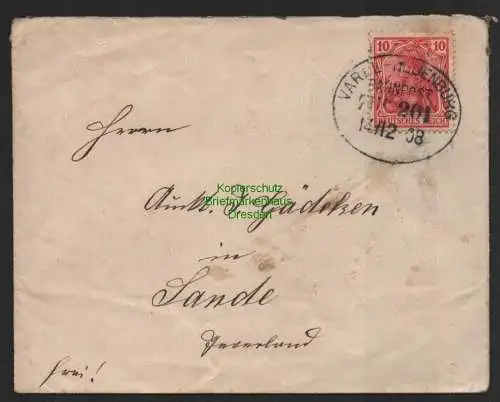 10 10
DEUTSCHES REICH
VAREL-OLDENBURG
BAHNPOST
ZUG 201
14 12 08
Herrn
Kopierschutz
Briefmarkenhaus
Dresden
Aukt. J Gädeken
in
Sande
Jeverland
frei!